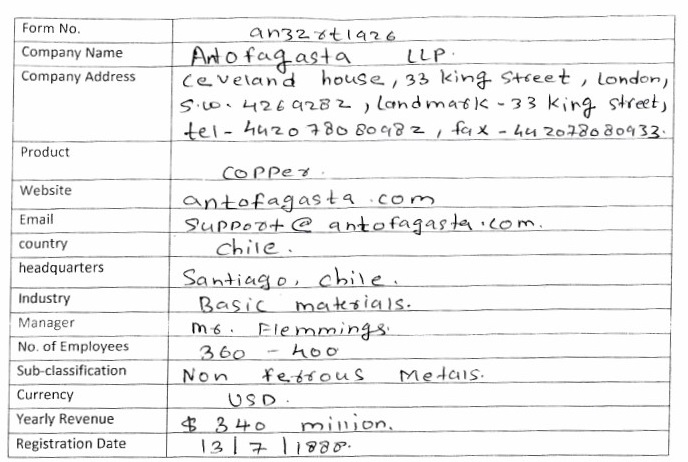 Form No. an32rt1926
Company Name Antofagasta LLP.
Company Address Ceveland house, 33 king Street, London,
S.W. 4269282, Landmark - 33 king street,
tel - 4420 780 80982, fax - 44 2078080933.
Product Copper.
Website antofagasta.com
Email Support@antofagasta.com.
country Chile.
headquarters Santiago, Chile.
Industry Basic materials.
Manager Mr. Flemmings.
No. of Employees 360 - 400
Sub-classification Non ferrous Metals.
Currency USD.
Yearly Revenue $ 340 million.
Registration Date 13|7|1888.